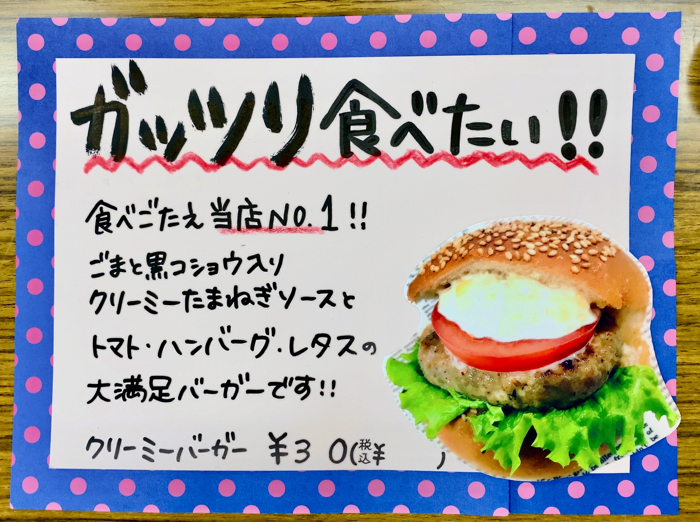 ガッツリ食べたい!!
食べごたえ当店NO.1!!
ごまと黒コショウ入り
クリーミーたまねぎソースと
トマト・ハンバーグ・レタスの
大満足バーガーです!!
クリーミーバーガー ¥3 0(税込¥ )